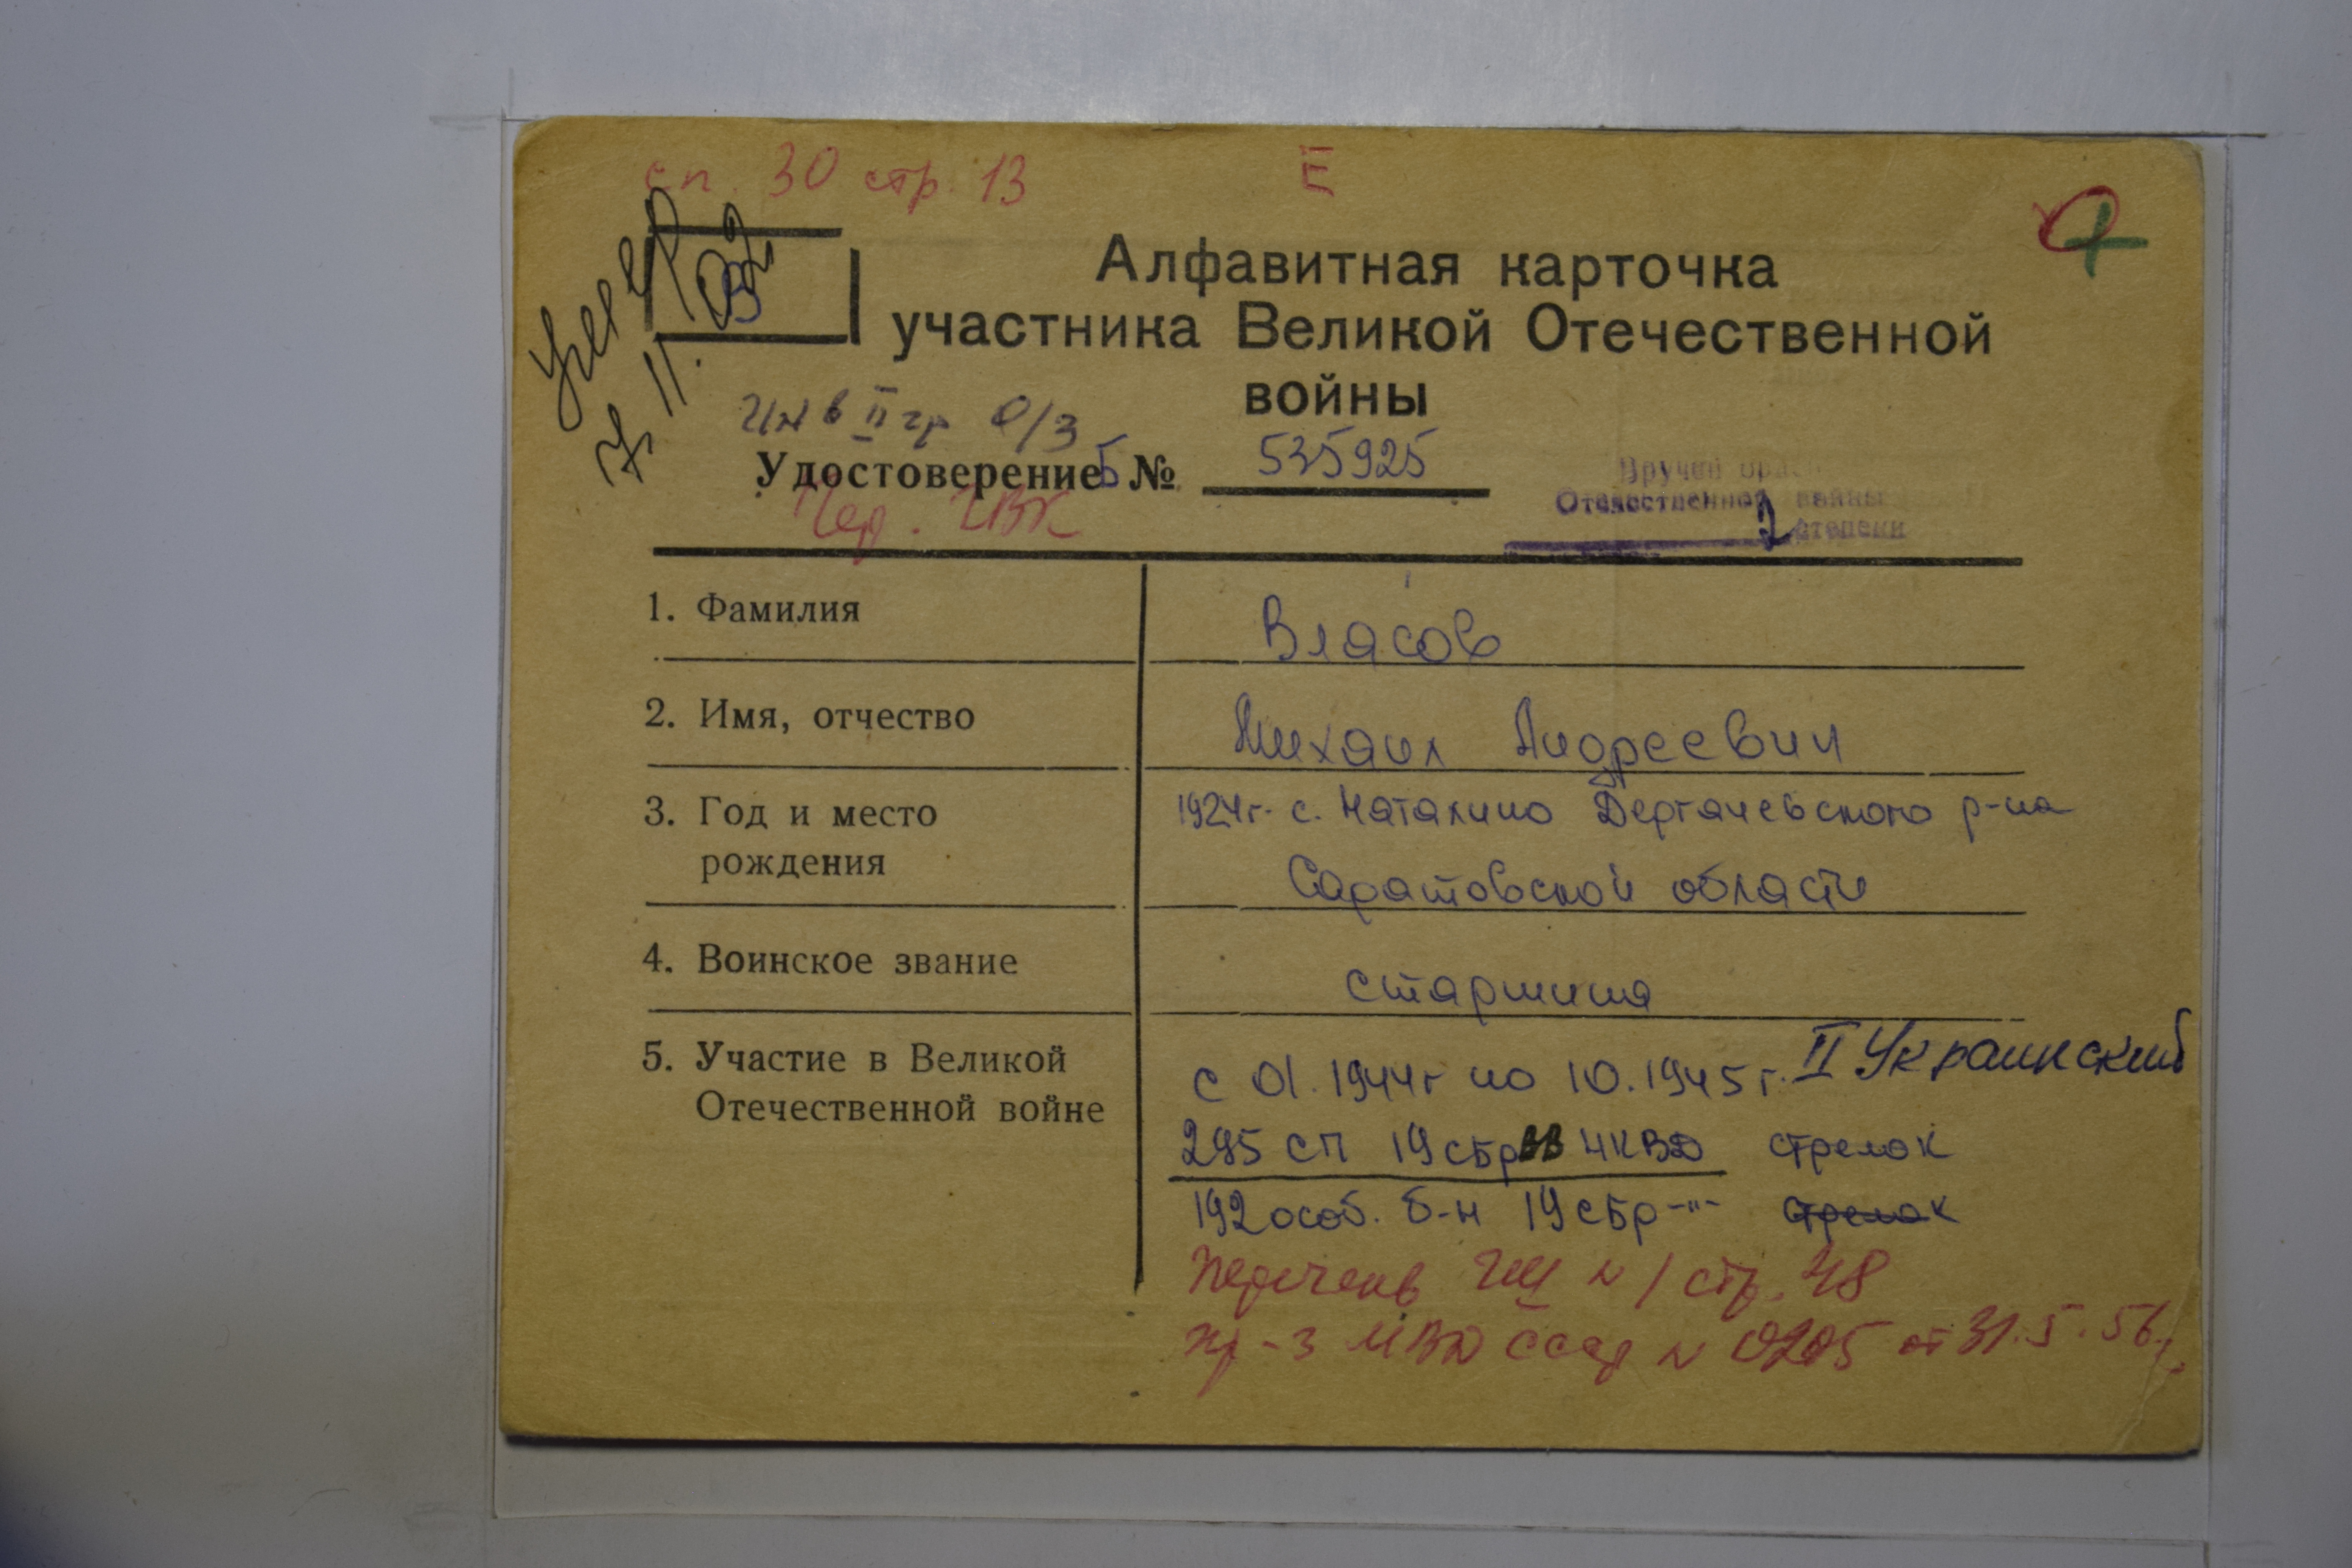 сп. 30 стр. 13 Ё
Умер
7. 11. 92
В
Алфавитная карточка
участника Великой Отечественной
войны
Инв II гр О/З
Удостоверение Б № 535925
Пер. ГВК
Вручен орден
Отечественной войны
2 степени
1. Фамилия Власов
2. Имя, отчество Михаил Андреевич
3. Год и место 1924г. с. Наталино Дергачевского р-на
рождения Саратовской области
4. Воинское звание старшина
5. Участие в Великой с 01.1944г по 10.1945г. II Украинский
Отечественной войне
295 СП 19 сбр ВВ НКВД стрелок
192 особ. б-н 19 сбр -"- стрелок
Перечень ГШ N 1 стр. 48
пр-з МВД СССР N 0205 от 31.5.56г.